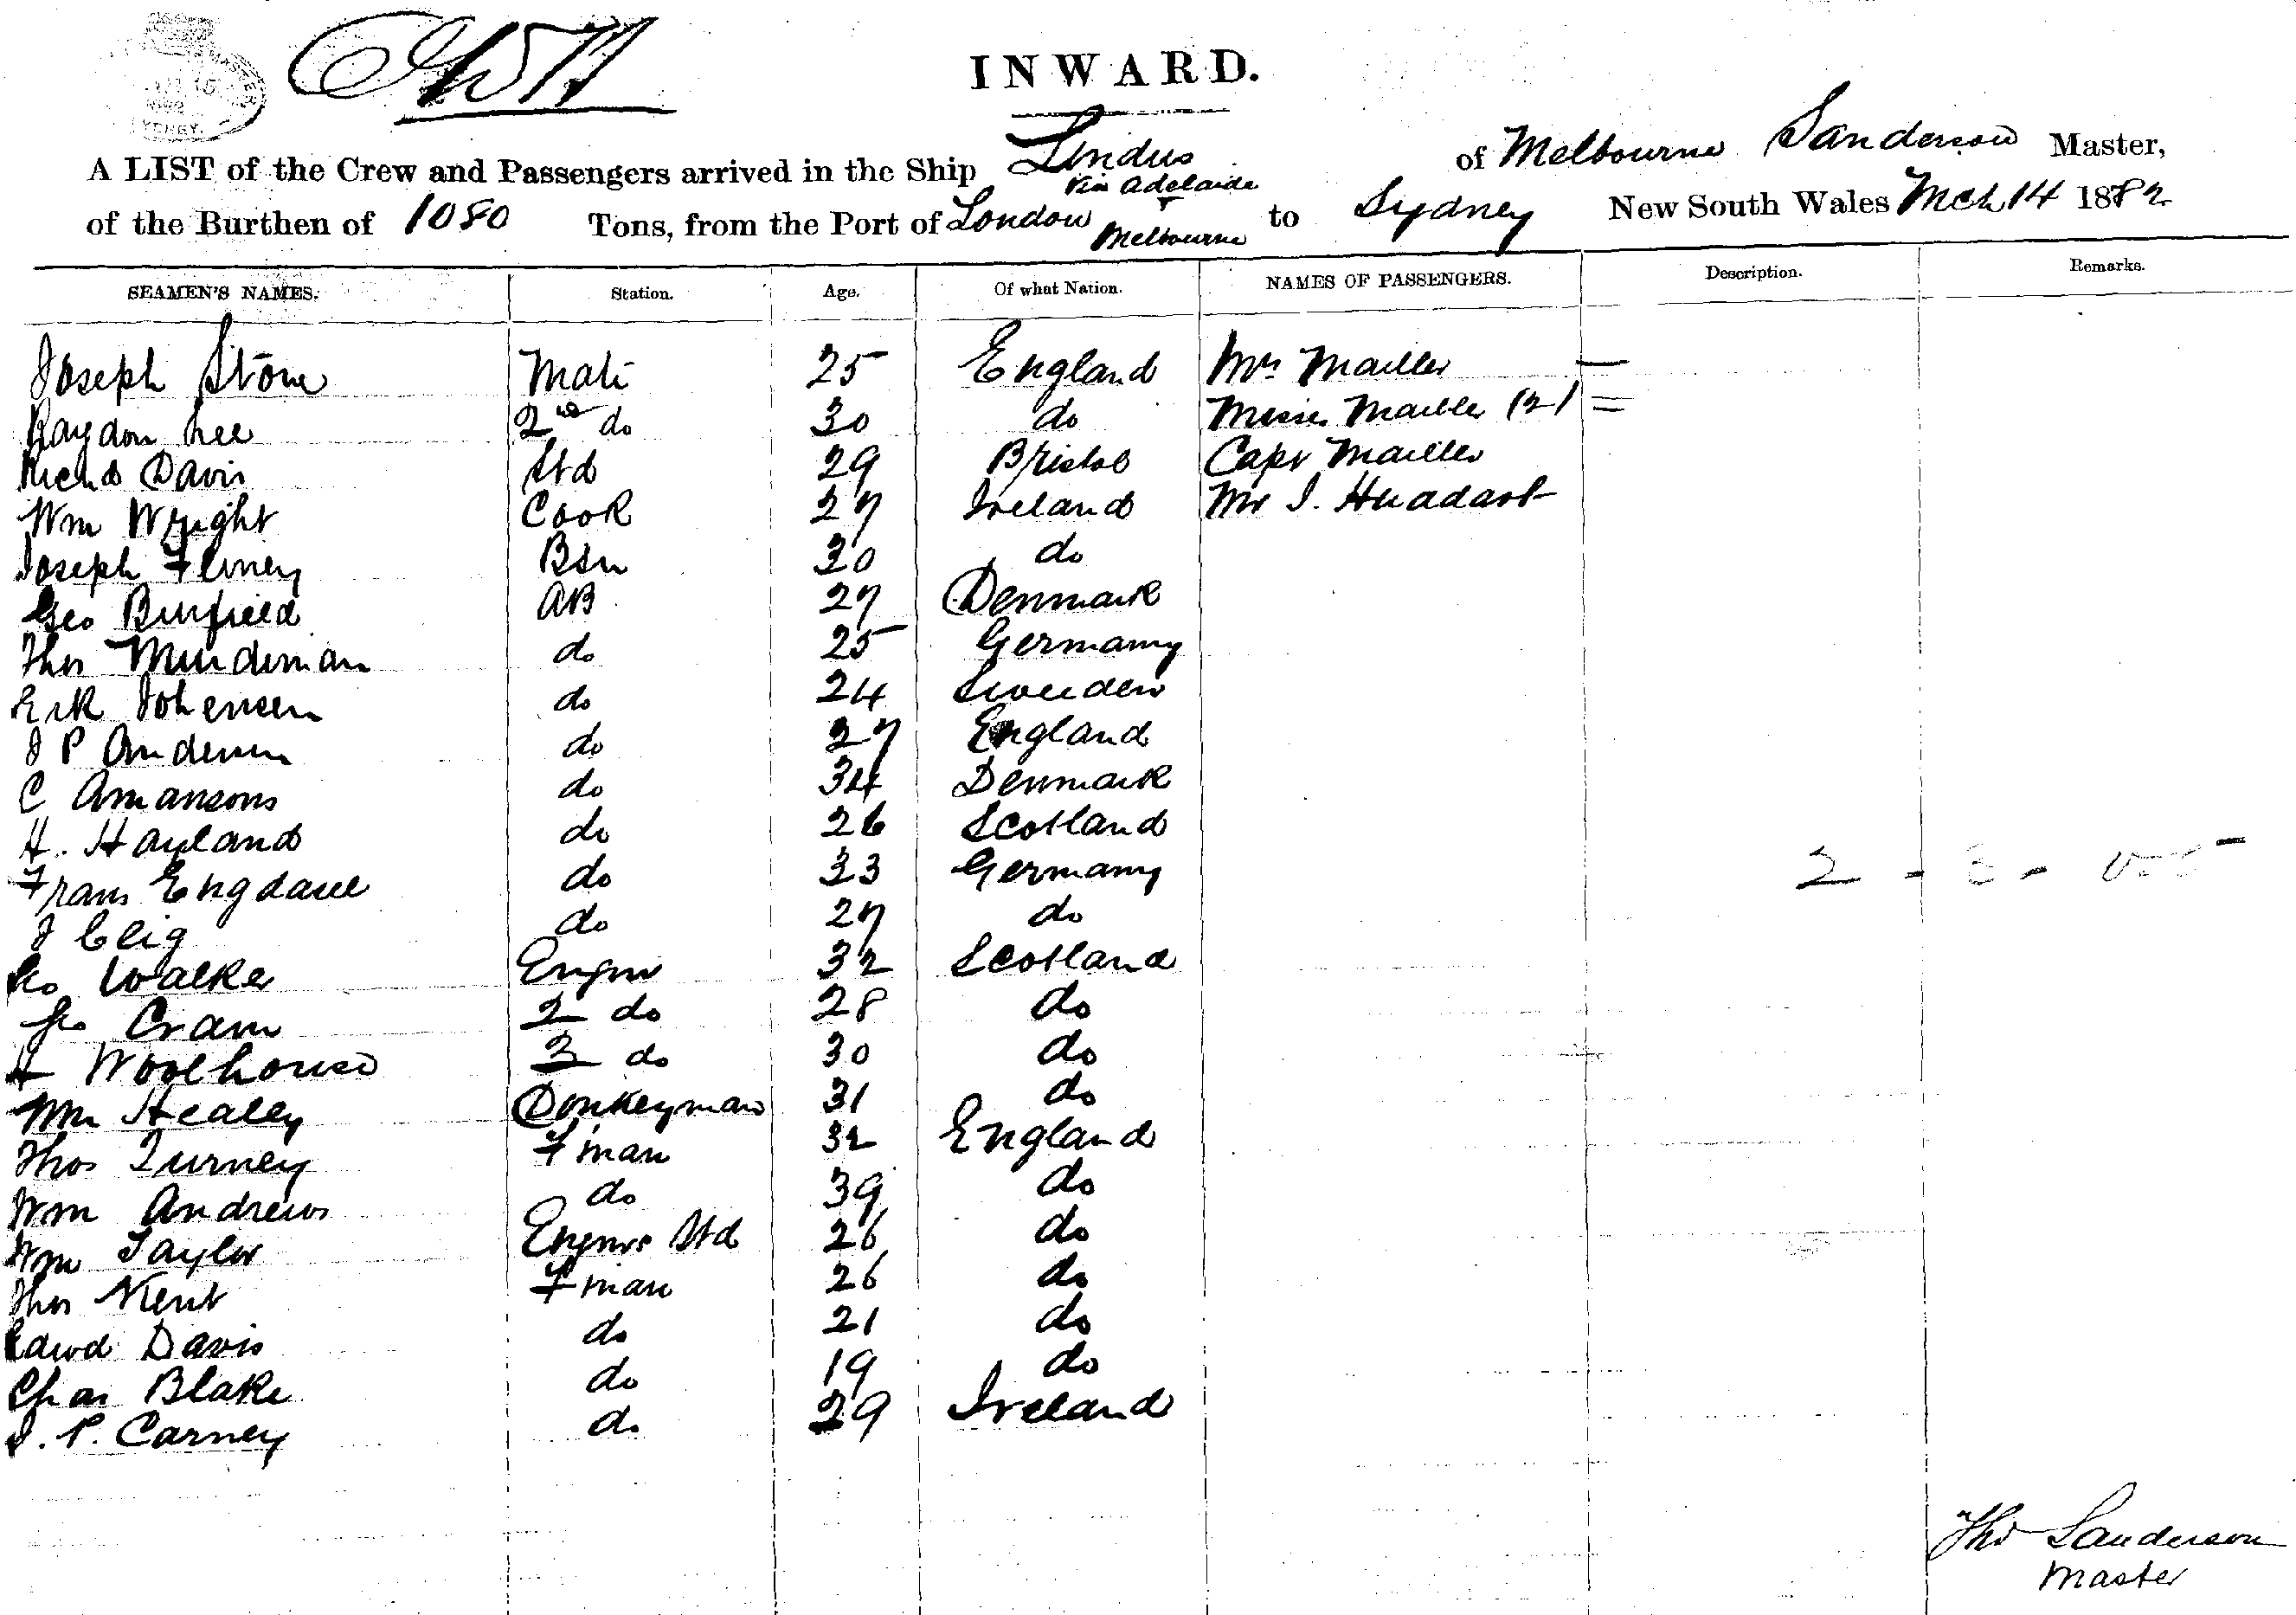 INWARD.
A LIST of the Crew and Passengers arrived in the Ship Lindus of Melbourne Sanderson Master,
via Adelaide
of the Burthen of 1080 Tons, from the Port of London Melbourne to Sydney New South Wales Mch 14 1882
SEAMEN'S NAMES. Station. Age. Of what Nation. NAMES OF PASSENGERS. Description. Remarks.
Joseph Stone Mate 25 England Mrs Mailler —
Haydon Lee 2nd do 30 do Misses Mailler (2) =
Richd Davis Std 29 Bristol Capt Mailler
Wm Wright Cook 27 Ireland Mr J. Huddart
Joseph Bsn 30 do
Geo Burfield AB 27 Denmark
Thos Mundeman do 25 Germany
Erk Johensen do 24 Sweeden
J P Andersen do 27 England
C Amansons do 34 Denmark
H. Hayland do 26 Scotland
Frans Engdall do 33 Germany
J Clig do 27 do
Geo Walker Engnr 32 Scotland
Geo Cram 2 do 28 do
H Woolhouse 3 do 30 do
Wm Healey Donkeyman 31 do
Thos Turney Fman 32 England
Wm Andrews do 39 do
Wm Taylor Engnrs Std 26 do
Thos Kent Fman 26 do
Edwd Davis do 21 do
Chas Blake do 19 do
J. P. Carney do 29 Ireland
Tho Sanderson
Master